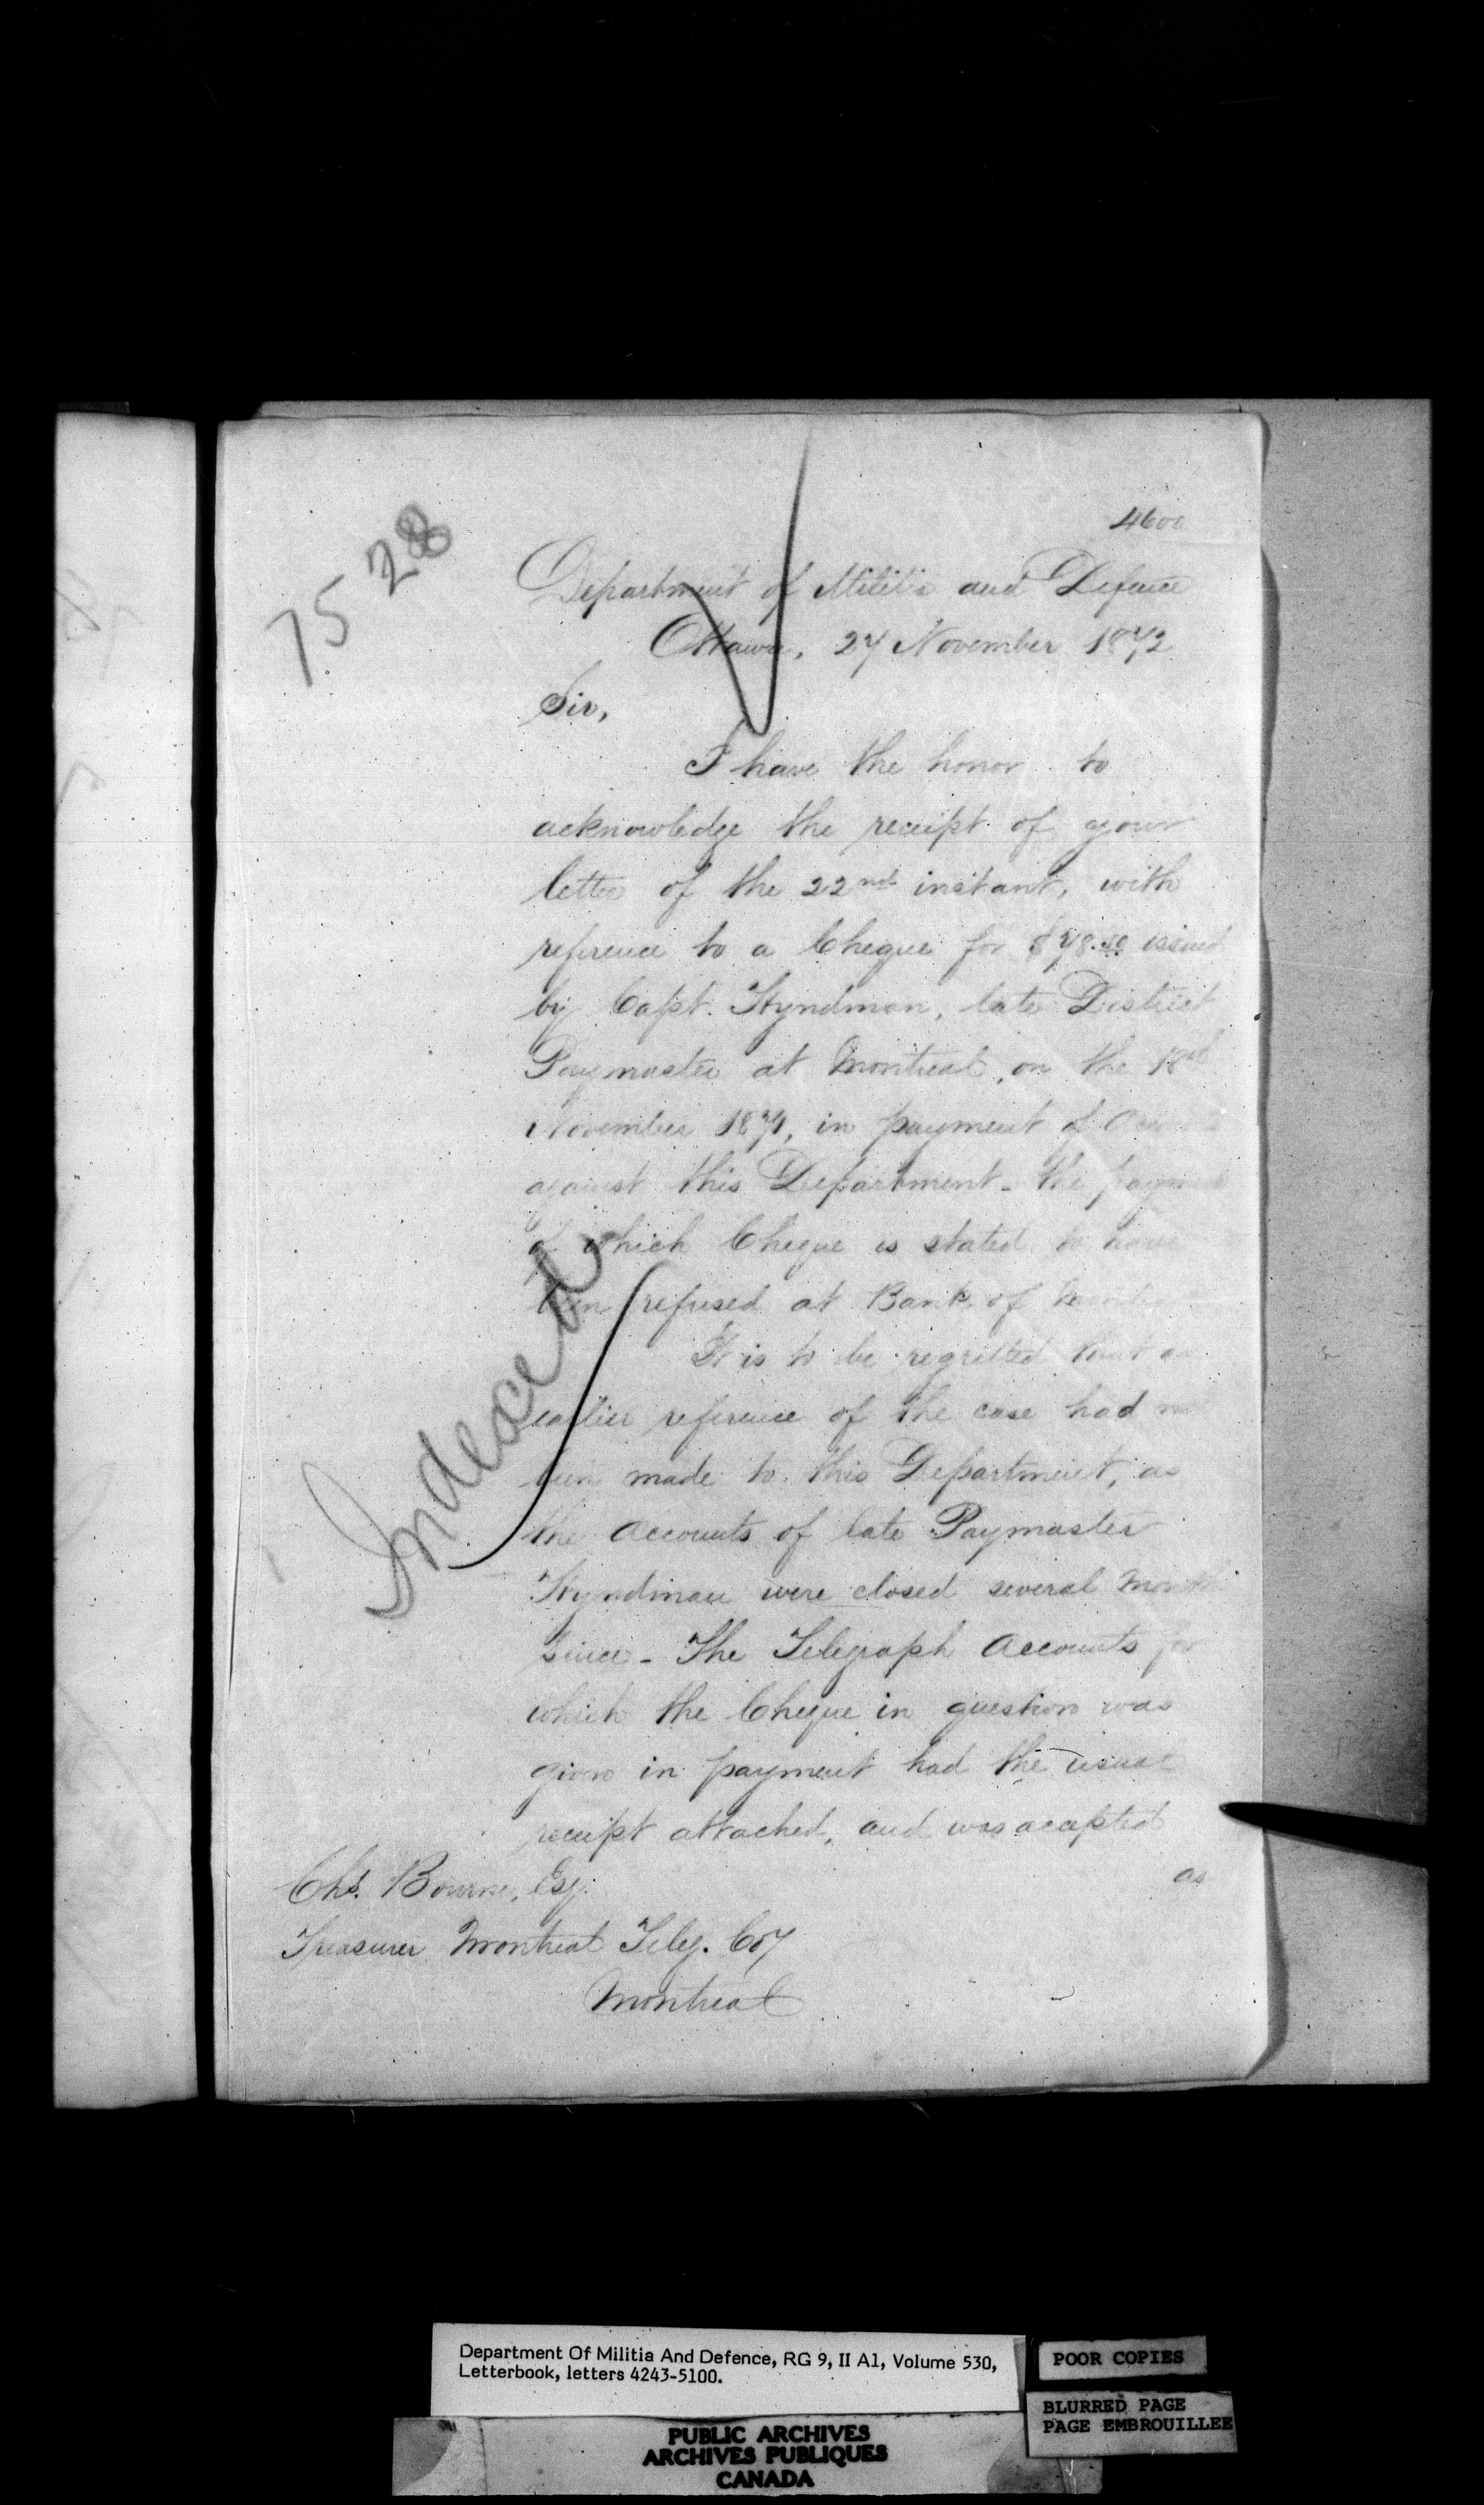 4600
7528
Department of Militia and Defence
Ottawa, 27 November 1872
Sir,
I have the honor to
acknowledge the receipt of your
letter of the 22nd instant, with
reference to a Cheque for $78.50 issued
by Capt. Hyndman, late District
Paymaster at Montreal, on the
November 1871, in payment of
against this Department - the payment
of which Cheque is stated to have
been refused at Bank of
It is to be regretted that an
earlier reference of the case had not
been made to this Department, as
the Accounts of late Paymaster
Hyndman were closed several months
since - The Telegraph Accounts for
which the Cheque in question was
given in payment had the usual
receipt attached, and was accepted
as
Indexed
Chs. Bourne, Esq.
Treasurer Montreal Teleg. Coy
Montreal
Department Of Militia And Defence, RG 9, II A1, Volume 530,
Letterbook, letters 4243-5100.
POOR COPIES
BLURRED PAGE
PAGE EMBROUILLEE
PUBLIC ARCHIVES
ARCHIVES PUBLIQUES
CANADA